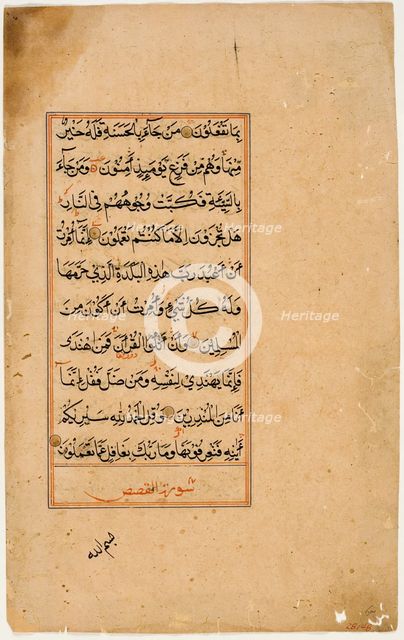 بِمَا تَفْعَلُونَ مَن جَاءَ بِالْحَسَنَةِ فَلَهُ خَيْرٌ
مِّنْهَا وَهُم مِّن فَزَعٍ يَوْمَئِذٍ آمِنُونَ وَمَن جَاءَ
بِالسَّيِّئَةِ فَكُبَّتْ وُجُوهُهُمْ فِي النَّارِ
هَلْ تُجْزَوْنَ إِلَّا مَا كُنتُمْ تَعْمَلُونَ إِنَّمَا أُمِرْتُ
أَنْ أَعْبُدَ رَبَّ هَذِهِ الْبَلْدَةِ الَّذِي حَرَّمَهَا
وَلَهُ كُلُّ شَيْءٍ وَأُمِرْتُ أَنْ أَكُونَ مِنَ
الْمُسْلِمِينَ وَأَنْ أَتْلُوَ الْقُرْآنَ فَمَنِ اهْتَدَى
فَإِنَّمَا يَهْتَدِي لِنَفْسِهِ وَمَن ضَلَّ فَقُلْ إِنَّمَا
أَنَا مِنَ الْمُنذِرِينَ وَقُلِ الْحَمْدُ لِلَّهِ سَيُرِيكُمْ
آيَاتِهِ فَتَعْرِفُونَهَا وَمَا رَبُّكَ بِغَافِلٍ عَمَّا تَعْمَلُونَ
سورة القصص
بسم الله
Heritage
Heritage
Heritage
Heritage
Heritage